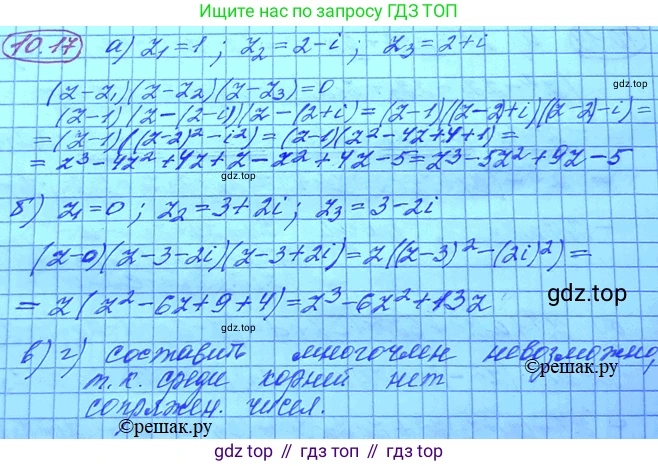 Ищите нас по запросу ГДЗ ТОП
10.17 а) z₁=1 ; z₂=2-i ; z₃=2+i
gdz.top
(z-z₁)(z-z₂)(z-z₃)=0
(z-1)(z-(2-i))(z-(2+i)=(z-1)(z-2+i)(z-2-i)=
=(z-1)((z-2)²-i²)=(z-1)(z²-4z+4+1)=
=z³-4z²+4z+z-z²+4z-5=z³-5z²+9z-5
б) z₁=0 ; z₂=3+2i ; z₃=3-2i
(z-0)(z-3-2i)(z-3+2i)=z((z-3)²-(2i)²)=
=z(z²-6z+9+4)=z³-6z²+13z
gdz.top
в) г) составить многочлен невозможно,
т.к. среди корней нет
сопряжен. чисел.
©решак.ру ©решак.ру
gdz.top // gdz.top // gdz.top // gdz.top